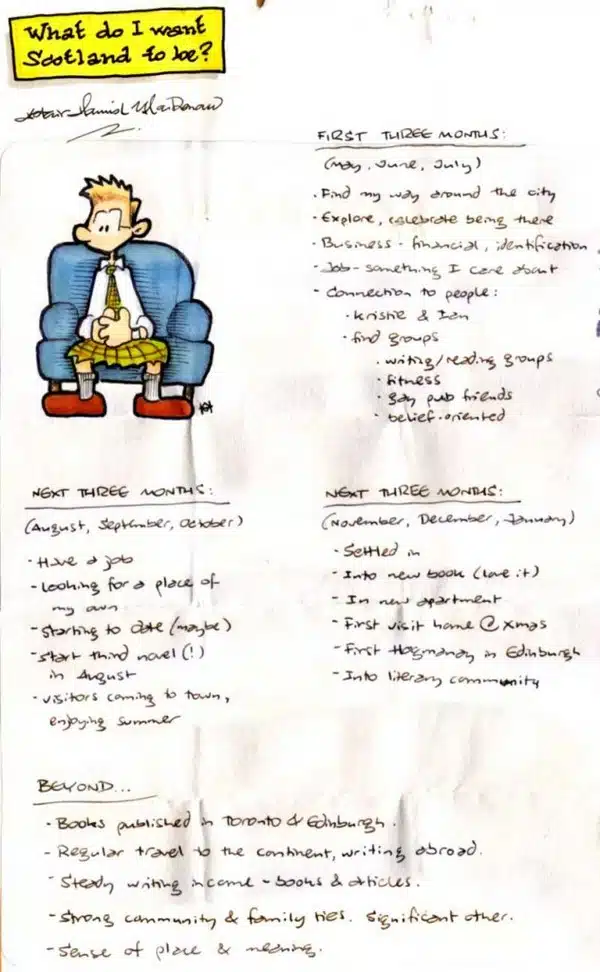 What do I want
Scotland to be?
Hamish MacDonald
FIRST THREE MONTHS:
(May, June, July)
· Find my way around the city
· Explore, celebrate being there
· Business - financial, identification
· Job - something I care about
· Connection to people:
· Kristie & Ian
· find groups
· writing/reading groups
· fitness
· gay pub friends
· belief-oriented
NEXT THREE MONTHS:
(August, September, October)
· Have a job
· Looking for a place of
my own
· Starting to date (maybe)
· Start third novel (!)
in August
· Visitors coming to town,
enjoying summer
NEXT THREE MONTHS:
(November, December, January)
· Settled in
· Into new book (love it)
· In new apartment
· First visit home @ Xmas
· First Hogmanay in Edinburgh
· Into literary community
BEYOND...
· Books published in Toronto & Edinburgh.
· Regular travel to the continent, writing abroad.
· Steady writing income - books & articles.
· Strong community & family ties. Significant other.
· Sense of place & meaning.